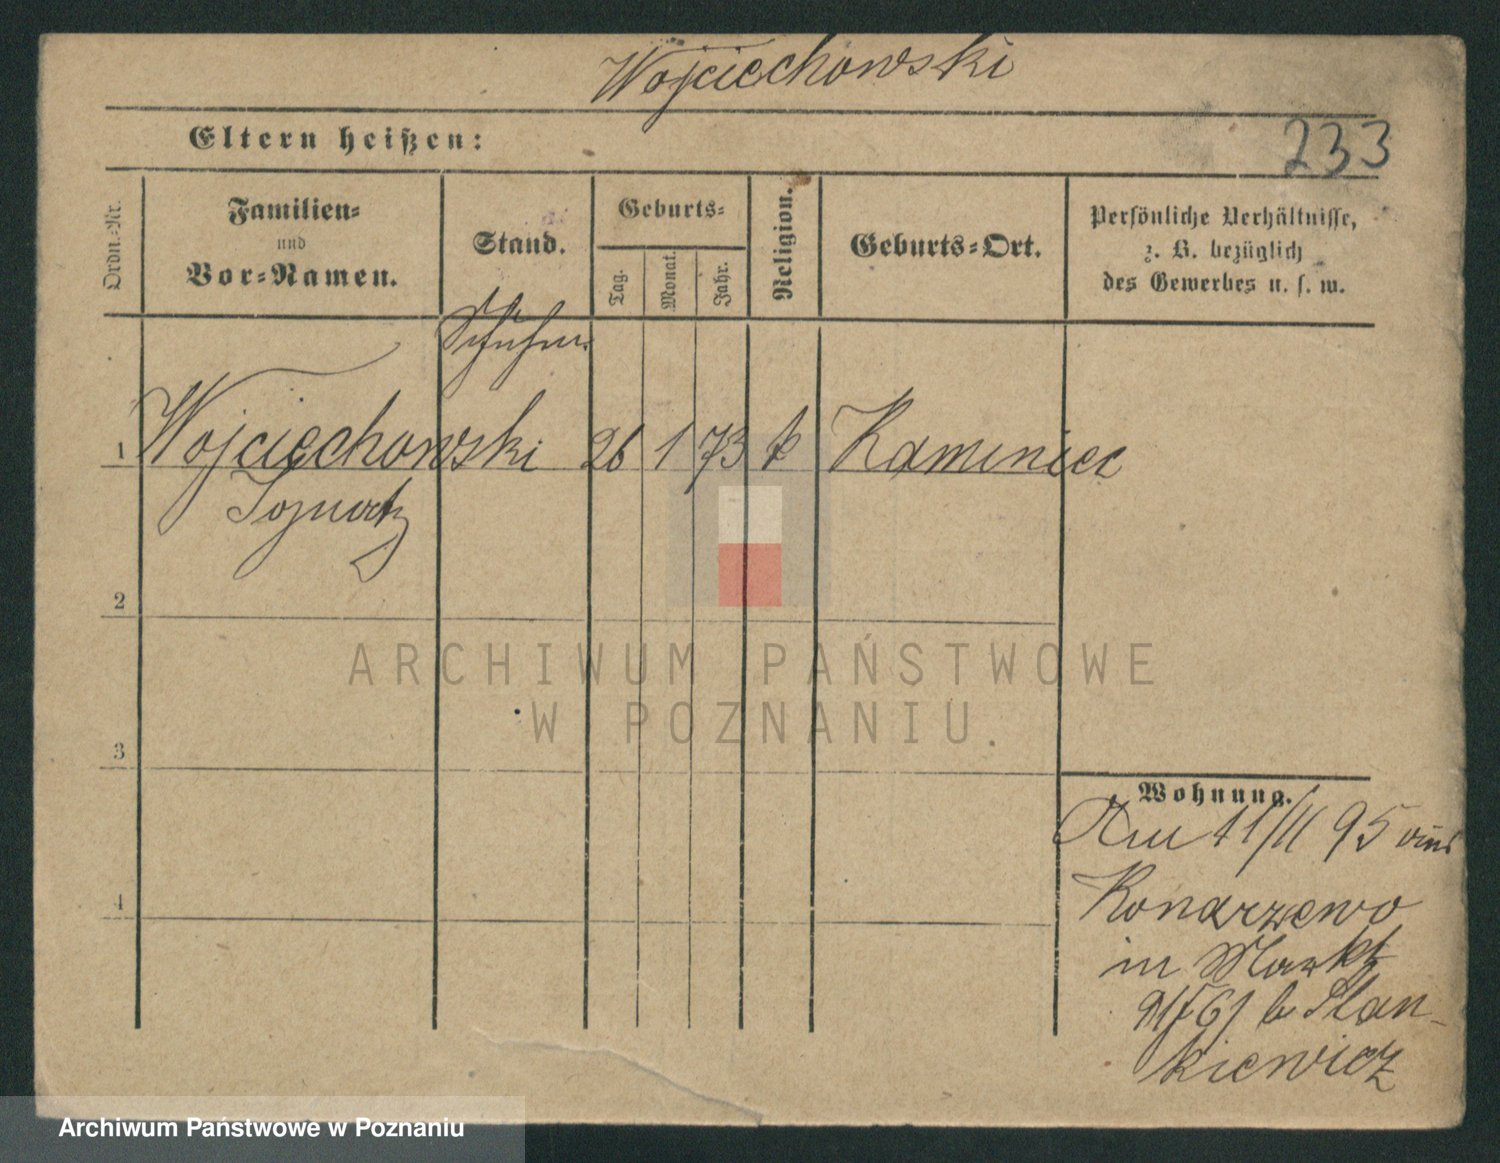 Wojciechowski
233
Eltern heißen:
Ordn.-Nr.
Familien-
und
Vor-Namen.
Stand.
Geburts-
Tag.
Monat.
Jahr.
Religion.
Geburts-Ort.
Persönliche Verhältnisse,
z. B. bezüglich
des Gewerbes u. s. w.
1 Wojciechowski 26 1 73 k Kaminiec
Ignatz
2
3
4
Wohnung.
Am 11/11 95 aus
Konarzewo
in Markt
91/I b Stan-
kiewicz
ARCHIWUM PAŃSTWOWE
W POZNANIU.
Archiwum Państwowe w Poznaniu